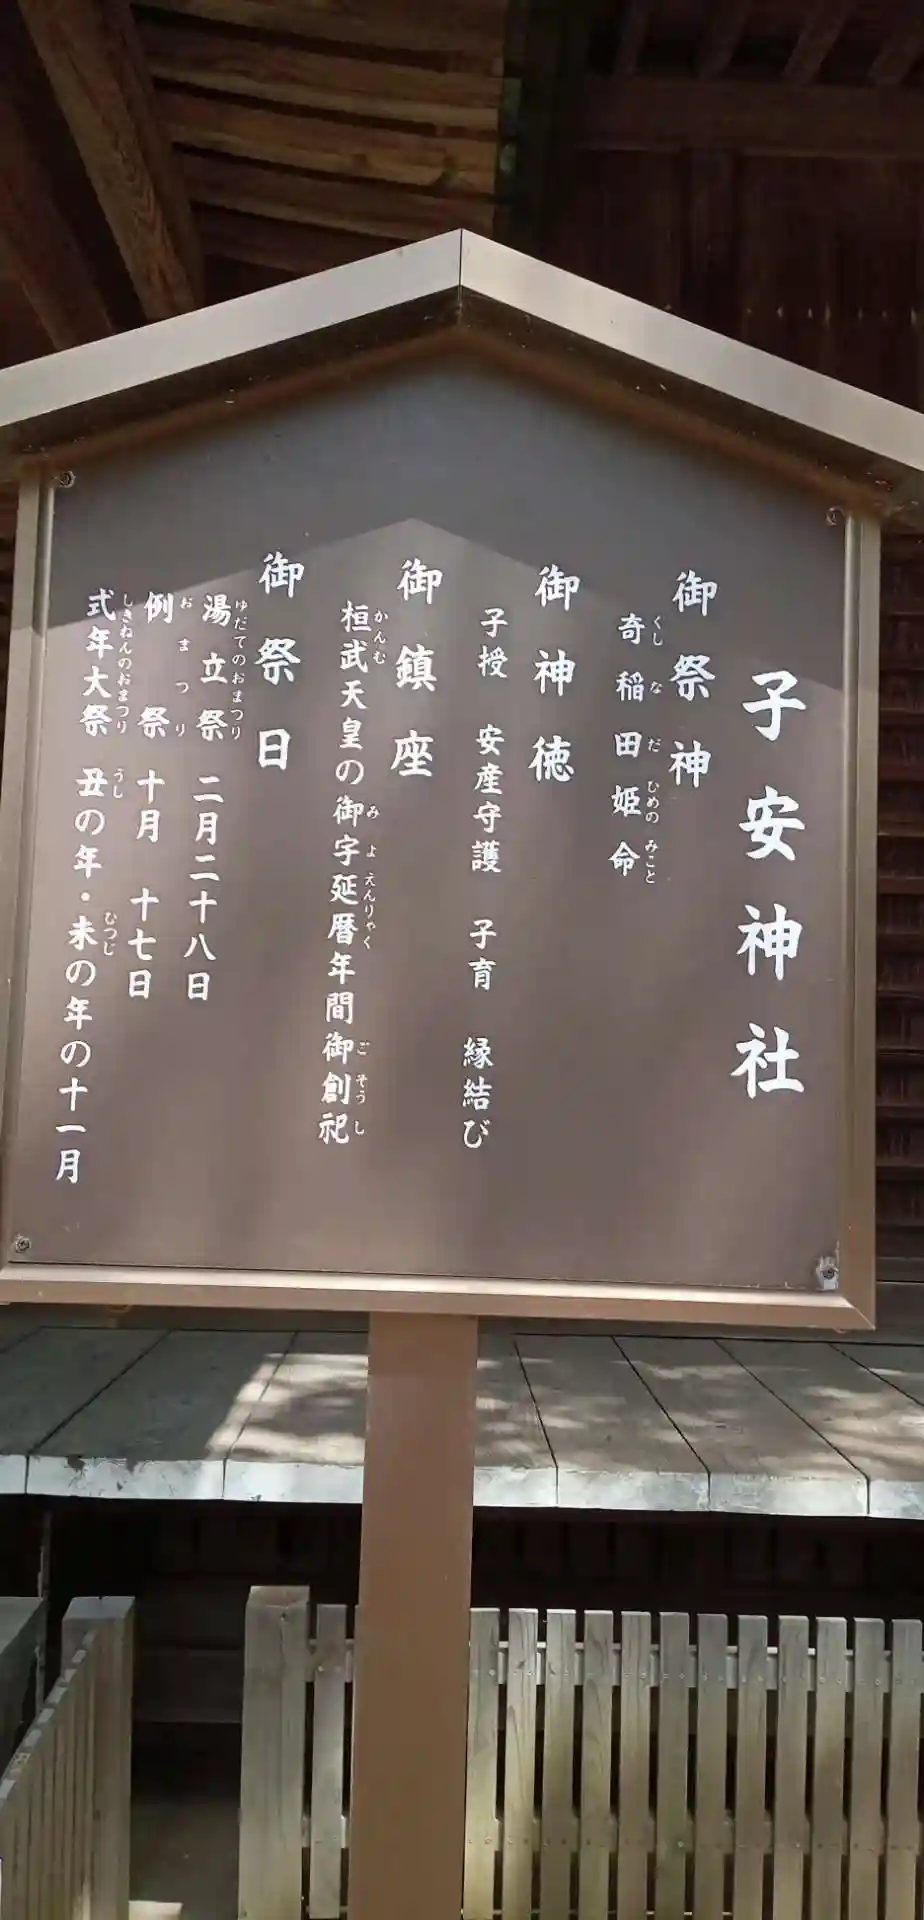 子安神社
御祭神
奇稲田姫命
くしなだひめのみこと
御神徳
子授 安産守護 子育 縁結び
御鎮座
桓武天皇の御宇延暦年間御創祀
かんむ みよ えんりゃく ごそうし
御祭日
湯立祭 二月二十八日
ゆだてのおまつり
例祭 十月 十七日
おまつり
式年大祭 丑の年・未の年の十一月
しきねんのおまつり うし ひつじ